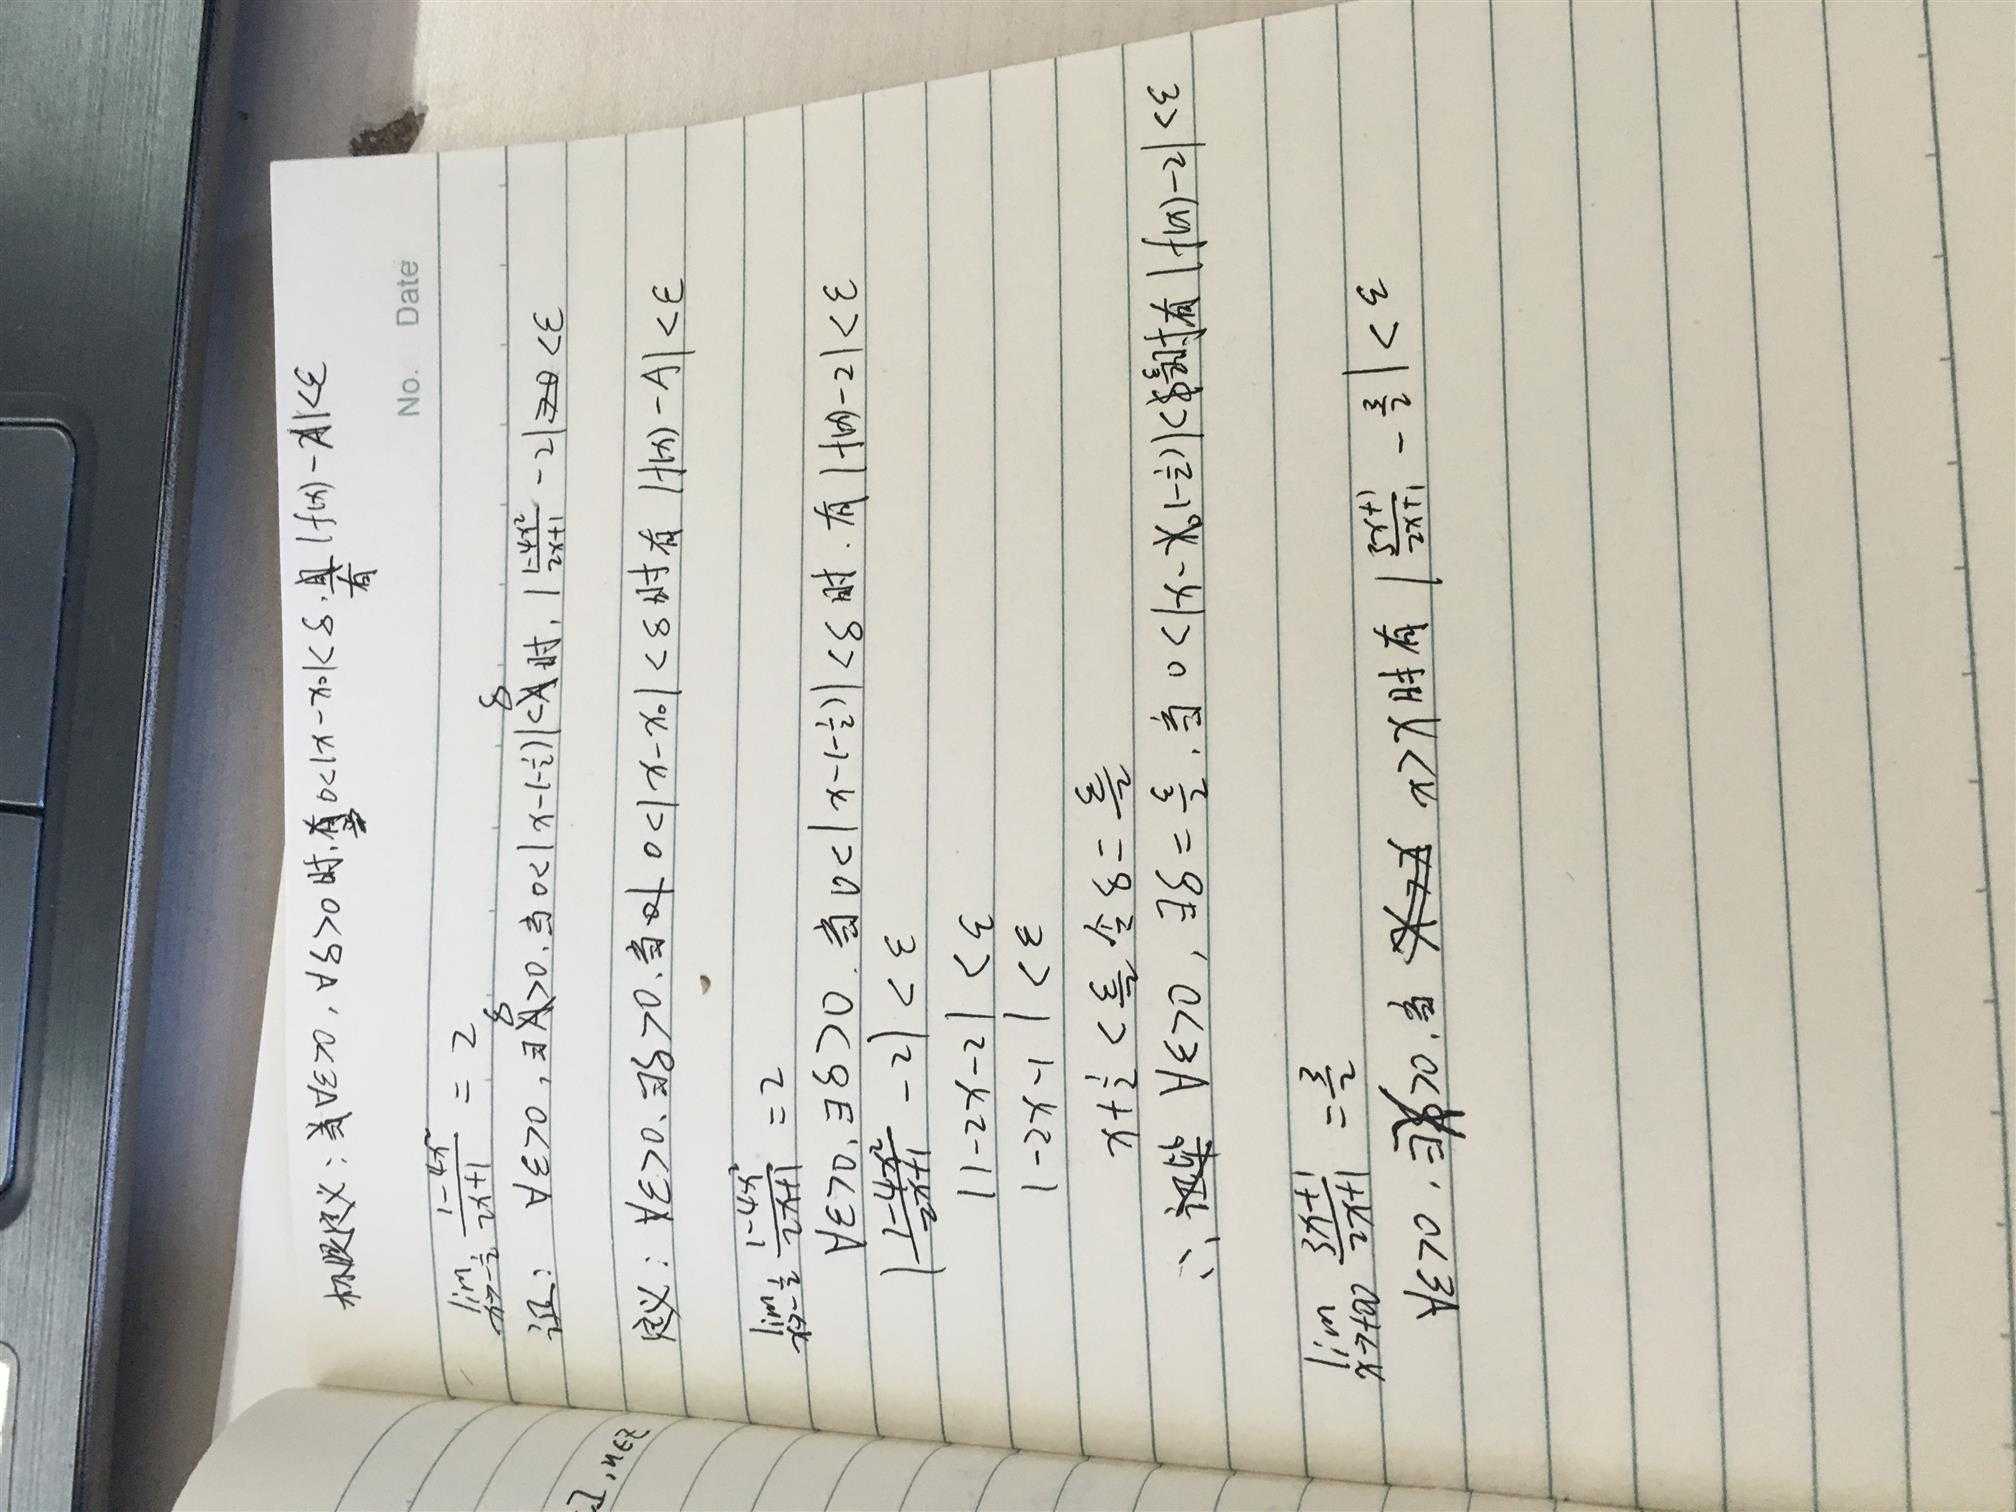 极限定义：当∀ε>0，∀δ>0时，有当0<|x-x₀|<δ，有|f(x)-A|<ε
No. Date
lim x→-1/2 (1-4x²)/(2x+1) = 2
证：∀ε>0，∃δ>0，当0<|x-(-1/2)|<δ时，|(1-4x²)/(2x+1) -2|<ε
定义：∀ε>0、∃δ>0，当 0<|x-x₀|<δ时有 |f(x)-A|<ε
lim x→-1/2 (1-4x²)/(2x+1) = 2
∀ε>0，∃δ>0，当0<|x-(-1/2)|<δ时，有|f(x)-2|<ε
|(1-4x²)/(2x+1) -2|<ε
|1-2x-2|<ε
|-2x-1|<ε
x+1/2<ε/2 令δ=ε/2
∴ ∀ε>0，∃δ=ε/2，当0<|x-(-1/2)|<ε/2时有|f(x)-2|<ε
lim x→+∞ (3x+1)/(2x+1) = 3/2
∀ε>0，∃X>0，当 x>X时有 |(3x+1)/(2x+1) - 3/2|<ε
],n∈Z